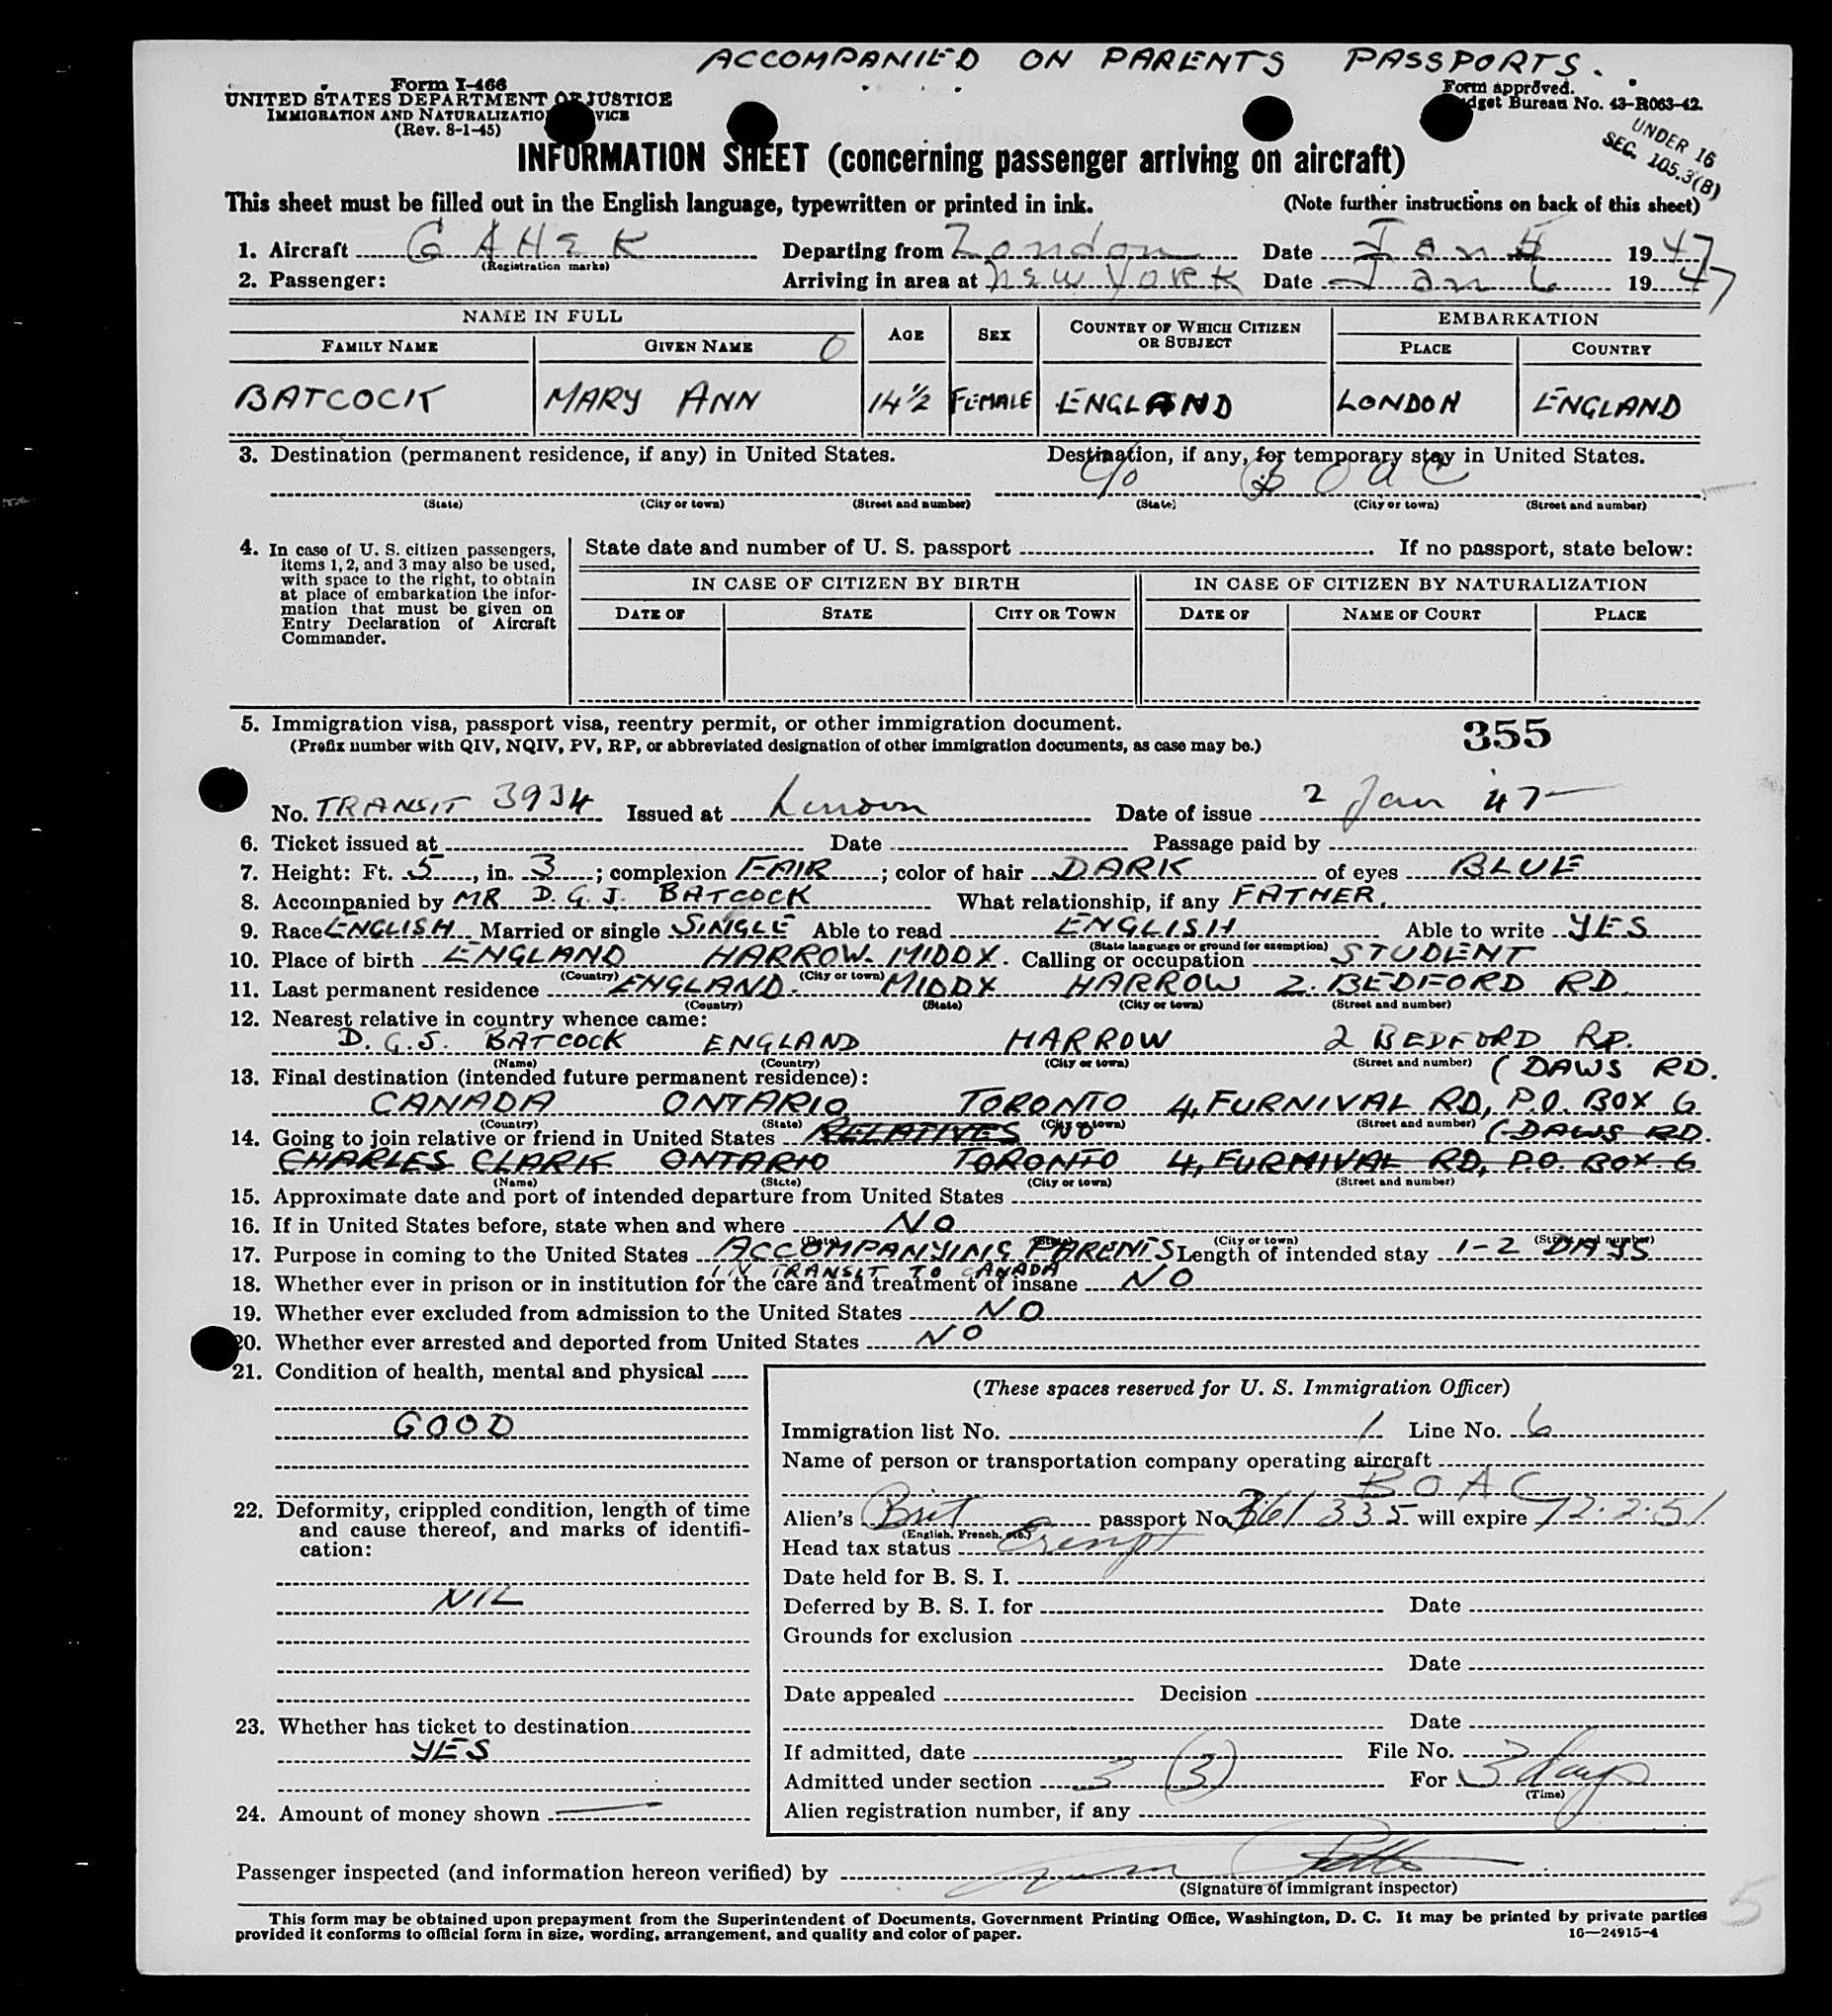 ACCOMPANIED ON PARENTS PASSPORTS.
Form I-466
UNITED STATES DEPARTMENT OF JUSTICE
IMMIGRATION AND NATURALIZATIO VICE
(Rev. 8-1-45)
Form approved.
dget Bureau No. 43-R063-42.
UNDER 16
SEC. 105.3(B)
INFORMATION SHEET (concerning passenger arriving on aircraft)
This sheet must be filled out in the English language, typewritten or printed in ink. (Note further instructions on back of this sheet)
1. Aircraft G AHEK Departing from London Date Jan 5 1947
(Registration marks)
2. Passenger: Arriving in area at New York Date Jan 6 1947
NAME IN FULL AGE SEX COUNTRY OF WHICH CITIZEN OR SUBJECT EMBARKATION
FAMILY NAME GIVEN NAME 0 PLACE COUNTRY
BATCOCK MARY ANN 14½ FEMALE ENGLAND LONDON ENGLAND
3. Destination (permanent residence, if any) in United States. Destination, if any, for temporary stay in United States.
c/o B O A C
(State) (City or town) (Street and number) (State) (City or town) (Street and number)
4. In case of U. S. citizen passengers, items 1, 2, and 3 may also be used, with space to the right, to obtain at place of embarkation the information that must be given on Entry Declaration of Aircraft Commander.
State date and number of U. S. passport . If no passport, state below:
IN CASE OF CITIZEN BY BIRTH IN CASE OF CITIZEN BY NATURALIZATION
DATE OF STATE CITY OR TOWN DATE OF NAME OF COURT PLACE
5. Immigration visa, passport visa, reentry permit, or other immigration document. 355
(Prefix number with QIV, NQIV, PV, RP, or abbreviated designation of other immigration documents, as case may be.)
No. TRANSIT 3934 Issued at London Date of issue 2 Jan '47
6. Ticket issued at Date Passage paid by
7. Height: Ft. 5, in. 3; complexion FAIR; color of hair DARK of eyes BLUE
8. Accompanied by MR D. G. J. BATCOCK What relationship, if any FATHER.
9. Race ENGLISH Married or single SINGLE Able to read ENGLISH Able to write YES
(State language or ground for exemption)
10. Place of birth ENGLAND HARROW. MIDDX. Calling or occupation STUDENT
(Country) (City or town)
11. Last permanent residence ENGLAND. MIDDX HARROW 2. BEDFORD RD
(Country) (State) (City or town) (Street and number)
12. Nearest relative in country whence came:
D. G. J. BATCOCK ENGLAND HARROW 2 BEDFORD RD.
(Name) (Country) (City or town) (Street and number)
13. Final destination (intended future permanent residence): (DAWS RD.
CANADA ONTARIO TORONTO 4, FURNIVAL RD, P.O. BOX 6
(Country) (State) (City or town) (Street and number)
14. Going to join relative or friend in United States RELATIVES NO (DAWS RD.
CHARLES CLARK ONTARIO TORONTO 4, FURNIVAL RD, P.O. BOX. 6
(Name) (State) (City or town) (Street and number)
15. Approximate date and port of intended departure from United States
16. If in United States before, state when and where NO
(Date) (State) (City or town) (Street and number)
17. Purpose in coming to the United States ACCOMPANYING PARENTS Length of intended stay 1-2 DAYS
IN TRANSIT TO CANADA
18. Whether ever in prison or in institution for the care and treatment of insane NO
19. Whether ever excluded from admission to the United States NO
20. Whether ever arrested and deported from United States NO
21. Condition of health, mental and physical
GOOD
22. Deformity, crippled condition, length of time and cause thereof, and marks of identification:
NIL
23. Whether has ticket to destination
YES
24. Amount of money shown —
(These spaces reserved for U. S. Immigration Officer)
Immigration list No. 1 Line No. 6
Name of person or transportation company operating aircraft
B O A C
Alien's Brit passport No. 361335 will expire 12.2.51
(English, French, etc.)
Head tax status Exempt
Date held for B. S. I.
Deferred by B. S. I. for Date
Grounds for exclusion
Date
Date appealed Decision
Date
If admitted, date File No.
Admitted under section 3 (3) For 3 days
(Time)
Alien registration number, if any
Passenger inspected (and information hereon verified) by
(Signature of immigrant inspector)
This form may be obtained upon prepayment from the Superintendent of Documents, Government Printing Office, Washington, D. C. It may be printed by private parties
provided it conforms to official form in size, wording, arrangement, and quality and color of paper. 16—24915-4
5